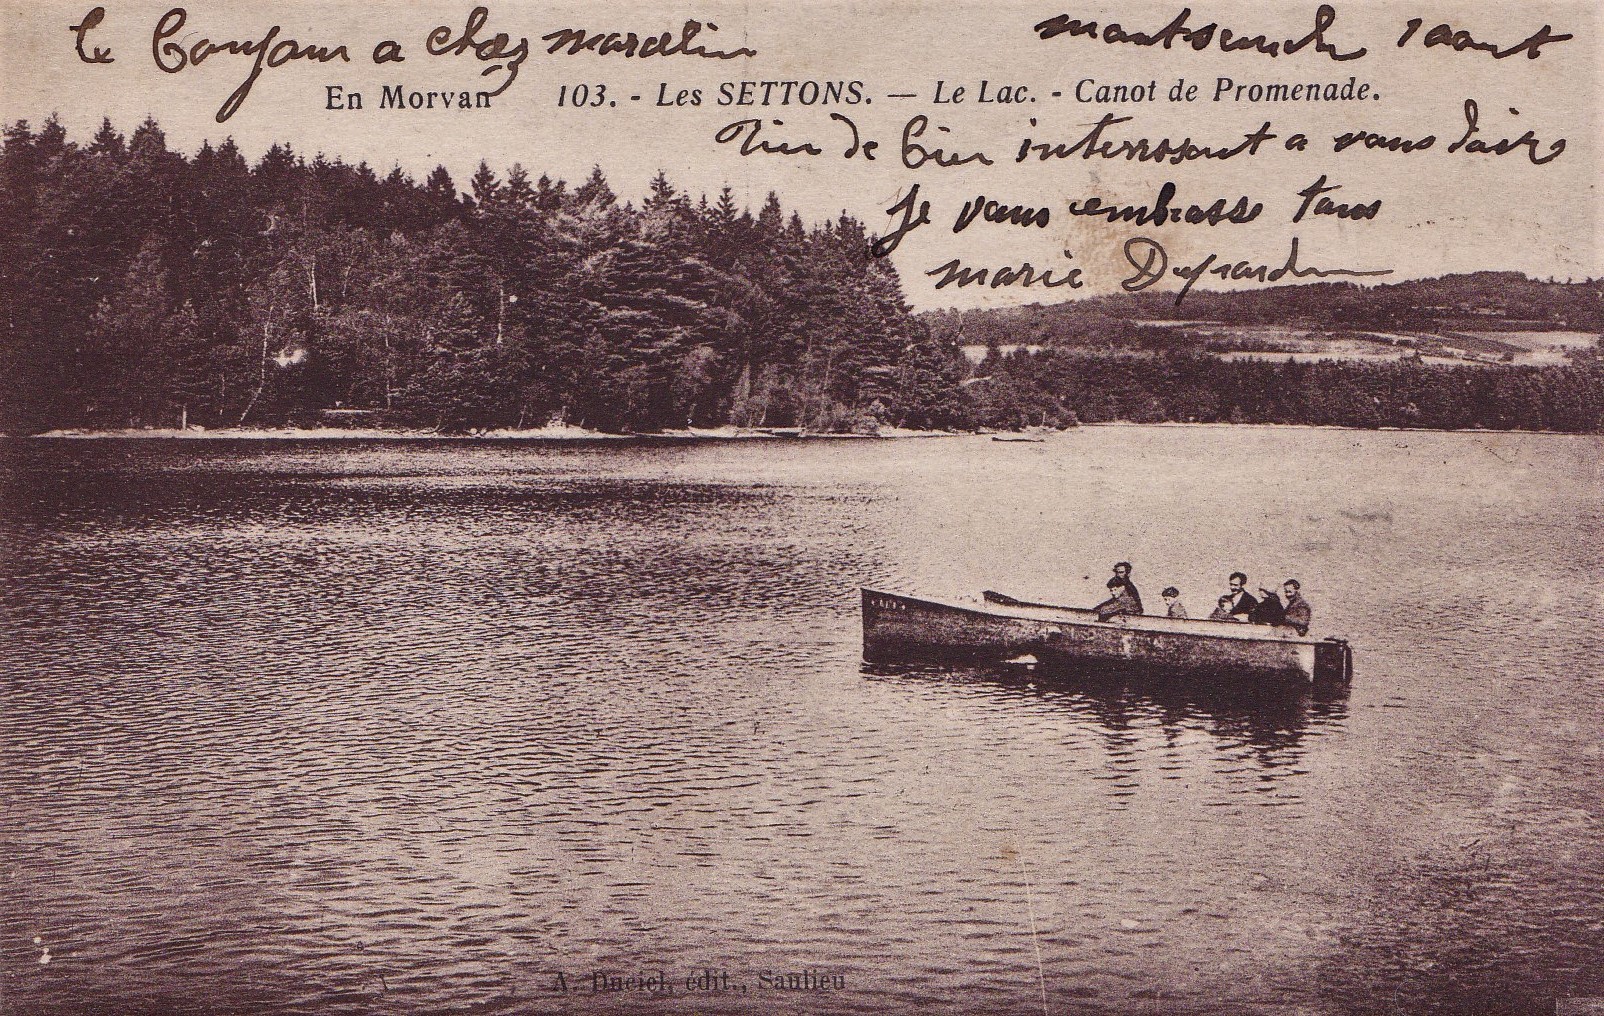 le Bonjour a chez marcelin
montsauche 1 aout
En Morvan 103. - Les SETTONS. — Le Lac. - Canot de Promenade.
Rien de bien interrssant a vous dire
je vous embrasse tous
marie Dujardin
A. Duciel, édit., Saulieu